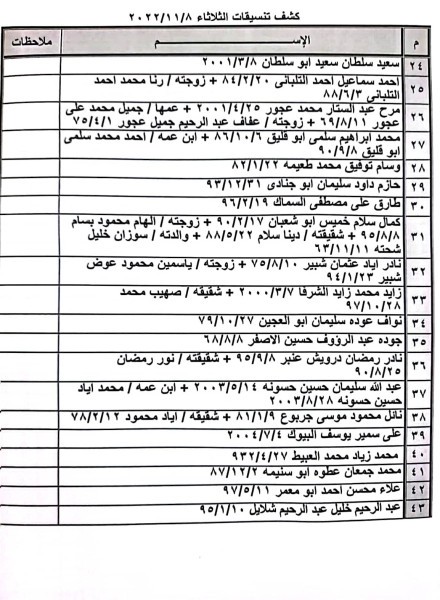 كشف تنسيقات الثلاثاء ٢٠٢٢/١١/٨
م الإســـــم ملاحظات
٢٤ سعيد سلطان سعيد ابو سلطان ٢٠٠١/٣/٨
٢٥ احمد سماعيل احمد التلبانى ٨٤/٢/٢٠ + زوجته / رنا محمد احمد
التلبانى ٨٨/٦/٣
٢٦ مرح عبد الستار محمد عجور ٢٠٠١/٤/٢٥ + عمها / جميل محمد على
عجور ٦٩/٨/١١ + زوجته / عفاف عبد الرحيم جميل عجور ٧٥/٤/١
٢٧ محمد ابراهيم سلمى ابو قليق ٨٦/١٠/٦ + ابن عمه / احمد محمد سلمى
ابو قليق ٩٠/٩/٨
٢٨ وسام توفيق محمد طعيمه ٨٢/١/٢٢
٢٩ حازم داود سليمان ابو جنادى ٩٣/١٢/٣١
٣٠ طارق على مصطفى السماك ٩٦/٢/١٩
٣١ كمال سلام خميس ابو شعبان ٩٠/٢/١٧ + زوجته / الهام محمود بسام
٩٥/٨/٨ + شقيقته / دينا سلام ٨٨/٥/٢٢ + والدته / سوزان خليل
شحته ٦٣/١١/١١
٣٢ نادر اياد عثمان شبير ٧٥/٨/١٠ + زوجته / ياسمين محمود عوض
شبير ٩٤/١/٢٣
٣٣ زايد محمد زايد الشرفا ٢٠٠٠/٣/٧ + شقيقه / صهيب محمد
٩٧/١٠/٢٨
٣٤ نواف عوده سليمان ابو العجين ٧٩/١٠/٢٧
٣٥ جوده عبد الرؤوف حسين الاصفر ٦٨/٨/٨
٣٦ نادر رمضان درويش عنبر ٩٥/٩/٨ + شقيقته / نور رمضان
٩٠/٨/٢٥
٣٧ عبد الله سليمان حسين حسونه ٢٠٠٣/٥/١٤ + ابن عمه / محمد اياد
حسين حسونه ٢٠٠٣/٨/٢٨
٣٨ نائل محمود موسى جربوع ٨١/١/٩ + شقيقه / اياد محمود ٧٨/٢/١٢
٣٩ على سمير يوسف البيوك ٢٠٠٤/٧/٤
٤٠ محمد زياد محمد العبيط ٩٣٢/٤/٢٧
٤١ محمد جمعان عطوه ابو سنيمه ٨٧/١٢/٢
٤٢ علاء محسن احمد ابو معمر ٩٧/٥/١١
٤٣ عبد الرحيم خليل عبد الرحيم شلايل ٩٥/١/١٠